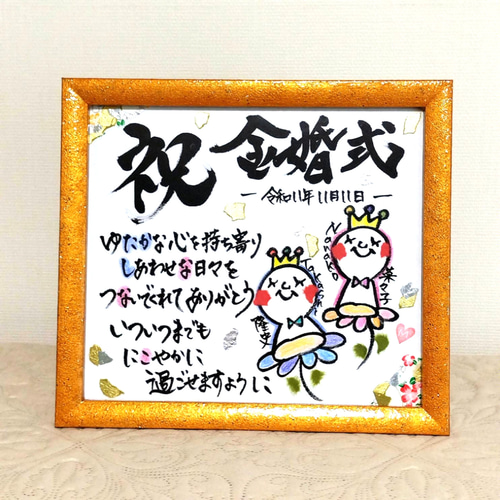 祝 金婚式
ー 令和11年11月11日 ー
ゆたかな心を持ち寄り
しあわせな日々を
つないでくれてありがとう
いついつまでも
にこやかに
過ごせますように
Takashi
隆史
Nanako
菜々子